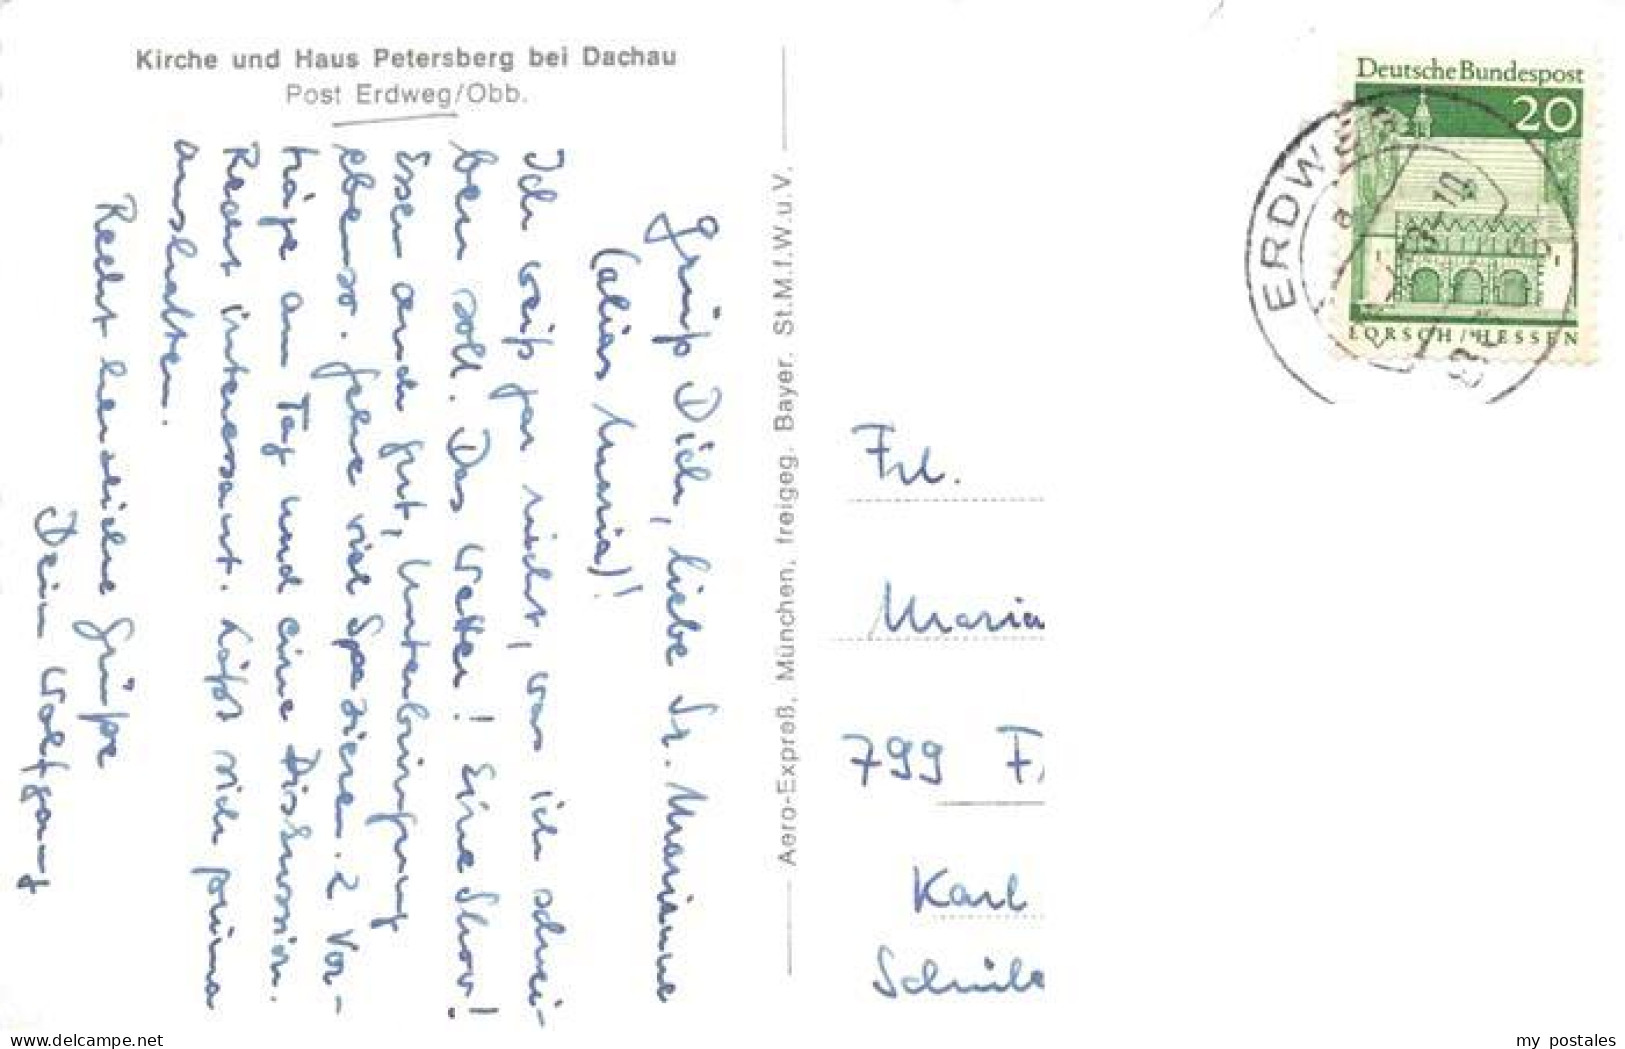 Kirche und Haus Petersberg bei Dachau
Post Erdweg/Obb.
Grüß Dich, liebe Sr. Marianne
(alias Maria)!
Ich weiß gar nicht, was ich schrei-
ben soll. Das Wetter! Eine Show!
Essen auch gut, Unterbringung
ebenso. Gehe viel spazieren. 2 Vor-
träge am Tag und eine Diskussion.
Recht interessant. Läßt sich prima
aushalten.
Recht herzliche Grüße
Dein Wolfgang
Aero-Expreß, München, freigeg. Bayer. St.M.f.W.u.V.
Deutsche Bundespost
20
LORSCH/HESSEN
ERDWEG
Frl.
Maria
799 F
Karl
Schüle
andreas-land.de
my postales